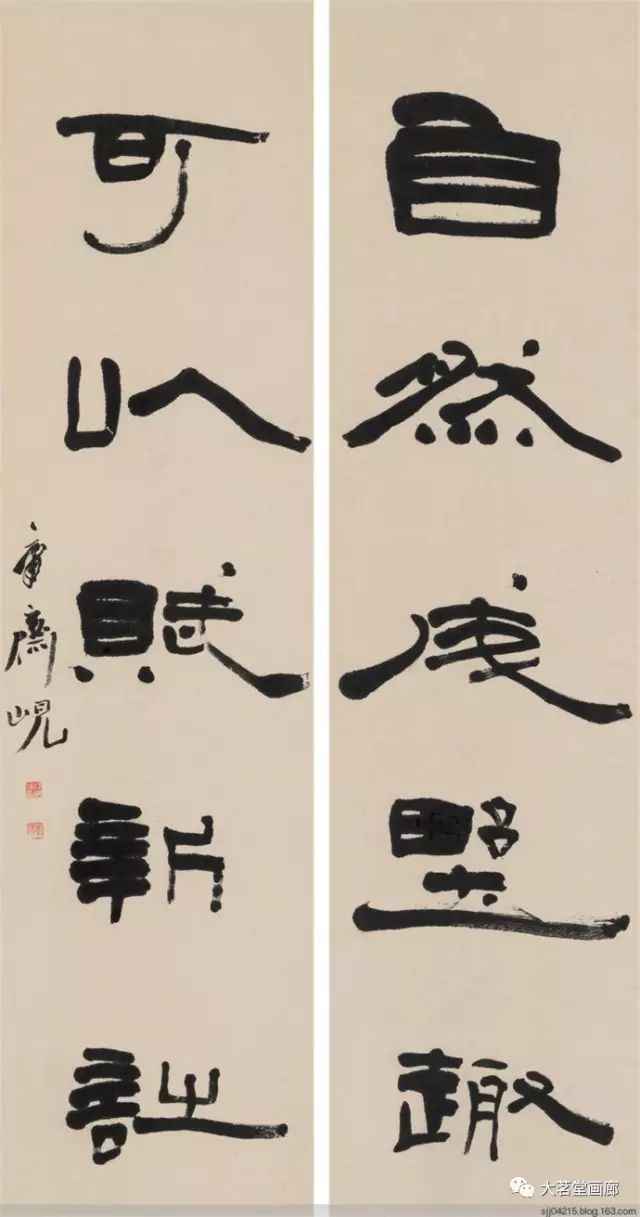 自然成野趣
可以賦新詩
庸齋峴
大茗堂画廊
sjj04215.blog.163.com